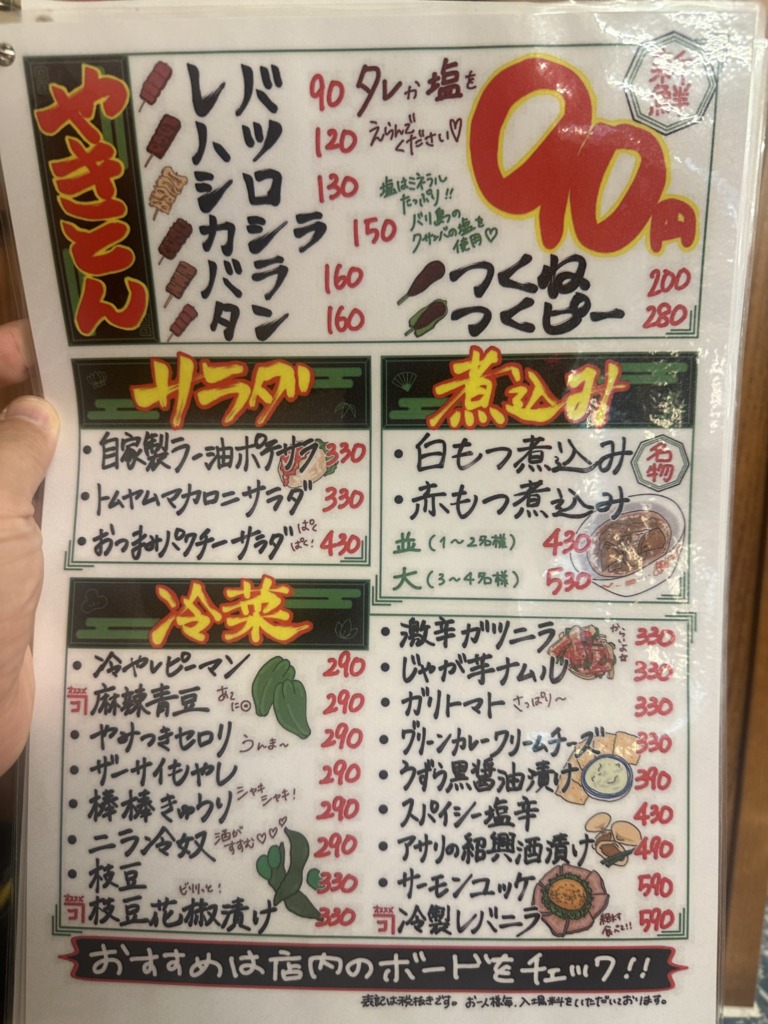 やきとん
レバ 90
ハツ 120
シロ 130
カシラ 150
バラ 160
タン 160
タレか塩を
えらんで
ください♡
塩はミネラル
たっぷり!!
バリ島の
クサンバの塩を
使用♡
新鮮
90円
つくね 200
つくピー 280
サラダ
・自家製ラー油ポテサラ 330
・トムヤムマカロニサラダ 330
・おつまみパクチーサラダ ぱく ぱく! 430
煮込み
・白もつ煮込み
・赤もつ煮込み
名物
並(1〜2名様) 430
大(3〜4名様) 530
冷菜
・冷やしピーマン 290
麻辣青豆 290
・やみつきセロリ うんま〜 290
・ザーサイもやし 290
・棒棒きゅうり シャキ シャキ! 290
・ニラン冷奴 酒が すすむ♡♡♡ 290
・枝豆 330
枝豆花椒漬け ビリリっと! 330
・激辛ガツニラ 330
・じゃが芋ナムル 330
・ガリトマト さっぱり〜 330
・グリーンカレークリームチーズ 330
・うずら黒醤油漬け 390
・スパイシー塩辛 430
・アサリの紹興酒漬け 490
・サーモンユッケ 590
冷製レバニラ 590
おすすめは店内のボードをチェック!!
表記は税抜きです。お一人様毎、入場料をいただいております。